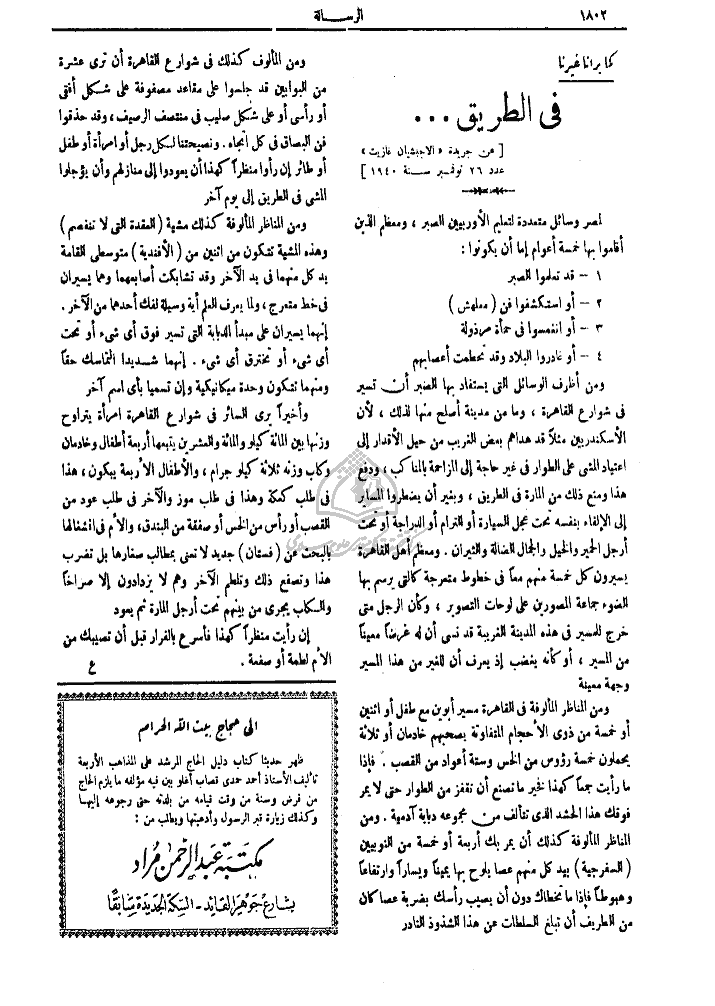 ١٨٠٢
الرسالة
كما يرانا غيرنا
في الطريق ...
[ من جريدة « الاجبشيان غازيت »
عدد ٢٦ نوفمبر سنة ١٩٤٠ ]
لمصر وسائل متعددة لتعليم الأوربيين الصبر ، ومعظم الذين
أقاموا بها خمسة أعوام إما أن يكونوا :
١ – قد تعلموا الصبر
٢ – أو استكشفوا فن ( معلهش )
٣ – أو انغمسوا في حمأة مرذولة
٤ – أو غادروا البلاد وقد تحطمت أعصابهم
ومن أظرف الوسائل التي يستفاد بها الصبر أن تسير
في شوارع القاهرة ، وما من مدينة أصلح منها لذلك ، لأن
الأسكندريين مثلاً قد هداهم بعض الغريب من حيل الأقدار إلى
اعتياد المشي على الطوار في غير حاجة إلى المزاحمة بالمناكب ، ودفع
هذا ومنع ذلك من المارة في الطريق ، وبغير أن يضطروا السابر
إلى الإلقاء بنفسه تحت عجل السيارة أو الترام أو الدراجة أو تحت
أرجل الحمير والخيل والجمال الضالة والثيران . ومعظم أهل القاهرة
يسيرون كل خمسة منهم معاً في خطوط متعرجة كالتي يرسم بها
الضوء جماعة المصورين على لوحات التصوير ، وكأن الرجل متى
خرج للسير في هذه المدينة الغريبة قد نسي أن له غرضاً معيناً
من السير ، أو كأنه يغضب إذ يعرف أن للغير من هذا السير
وجهة معينة
ومن المناظر المألوفة في القاهرة مسير أبوين مع طفل أو اثنين
أو خمسة من ذوي الأحجام المتفاوتة يصحبهم خادمان أو ثلاثة
يحملون خمسة رؤوس من الخس وستة أعواد من القصب . فإذا
ما رأيت جمعاً كهذا فخير ما تصنع أن تقفز من الطوار حتى لا يمر
فوقك هذا الحشد الذي تتألف من مجموعه دبابة آدمية . ومن
المناظر المألوفة كذلك أن يمر بك أربعة أو خمسة من النوبيين
( السفرجية ) بيد كل منهم عصا يلوح بها يميناً ويساراً وارتفاعاً
وهبوطاً فإذا ما تخطاك دون أن يصيب رأسك بضربة عصا كان
من الطريف أن تبلغ السلطات عن هذا الشذوذ النادر
ومن المألوف كذلك في شوارع القاهرة أن ترى عشرة
من البوابين قد جلسوا على مقاعد مصفوفة على شكل أفقي
أو رأسي أو على شكل صليب في منتصف الرصيف ، وقد حذقوا
فن البصاق في كل اتجاه . ونصيحتنا لكل رجل أو امرأة أو طفل
أو طائر إن رأوا منظراً كهذا أن يعودوا إلى منازلهم وأن يؤجلوا
المشي في الطريق إلى يوم آخر
ومن المناظر المألوفة كذلك مشية ( العقدة التي لا تنفصم )
وهذه المشية تتكون من اثنين من ( الأفندية ) متوسطي القامة
يد كل منهما في يد الآخر وقد تشابكت أصابعهما وهما يسيران
في خط متعرج ، ولما يعرف العلم أية وسيلة لفك أحدهما من الآخر .
إنهما يسيران على مبدأ الدبابة التي تسير فوق أي شيء أو تحت
أي شيء أو تخترق أي شيء . إنهما شديدا التماسك حقاً
ومنهما تتكون وحدة ميكانيكية وإن تسميا بأي اسم آخر
وأخيراً يرى السائر في شوارع القاهرة امرأة يتراوح
وزنها بين المائة كيلو والمائة والعشرين يتبعها أربعة أطفال وخادمان
وكلب وزنه ثلاثة كيلو جرام ، والأطفال الأربعة يبكون ، هذا
في طلب كعكة وهذا في طلب موز والآخر في طلب عود من
القصب أو رأس من الخس أو صفقة من البندق، والأم في انشغالها
بالبحث عن ( فستان ) جديد لا تعنى بمطالب صغارها بل تضرب
هذا وتصفع ذلك وتلطم الآخر وهم لا يزدادون إلا صراخاً
والكلب يجري من بينهم تحت أرجل المارة ثم يعود
إن رأيت منظراً كهذا فأسرع بالفرار قبل أن تصيبك من
الأم لطمة أو صفعة .
ع
الى حجاج بيت الله الحرام
ظهر حديثا كتاب دليل الحاج المرشد على المذاهب الأربعة
تأليف الأستاذ أحمد حمدى قصاب أغلو بين فيه مؤلفه ما يلزم الحاج
من فرض وسنة من وقت قيامه من بلدته حتى رجوعه إليها
وكذلك زيارة قبر الرسول وأدعيتها ويطلب من :
مكتبة عبد الرحمن مراد
بشارع جوهر القائد - السكة الجديدة سابقا